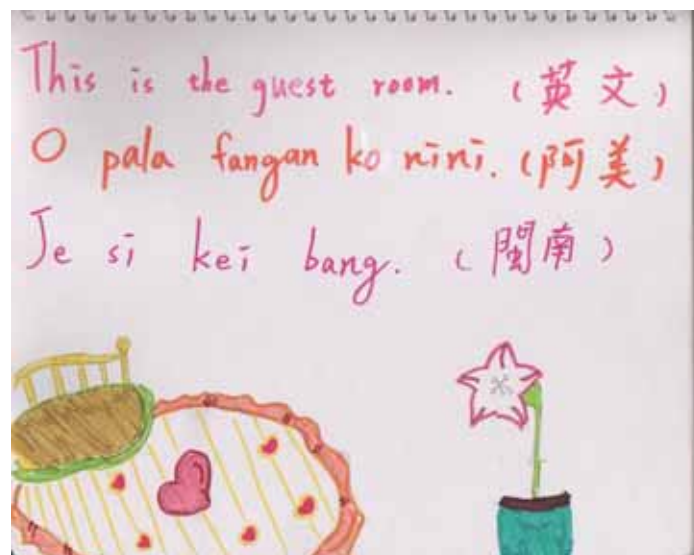 This is the guest room. (英文)
O pala fangan ko nini. (阿美)
Je si kei bang. (閩南)